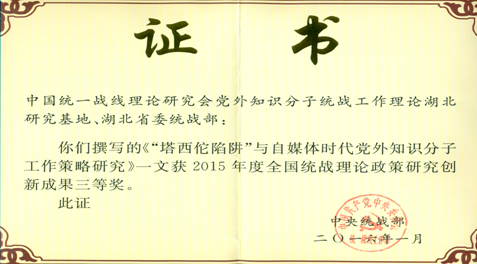 证书
中国统一战线理论研究会党外知识分子统战工作理论湖北
研究基地、湖北省委统战部：
你们撰写的《“塔西佗陷阱”与自媒体时代党外知识分子
工作策略研究》一文获2015年度全国统战理论政策研究创
新成果三等奖。
此证
中央统战部
二〇一六年一月